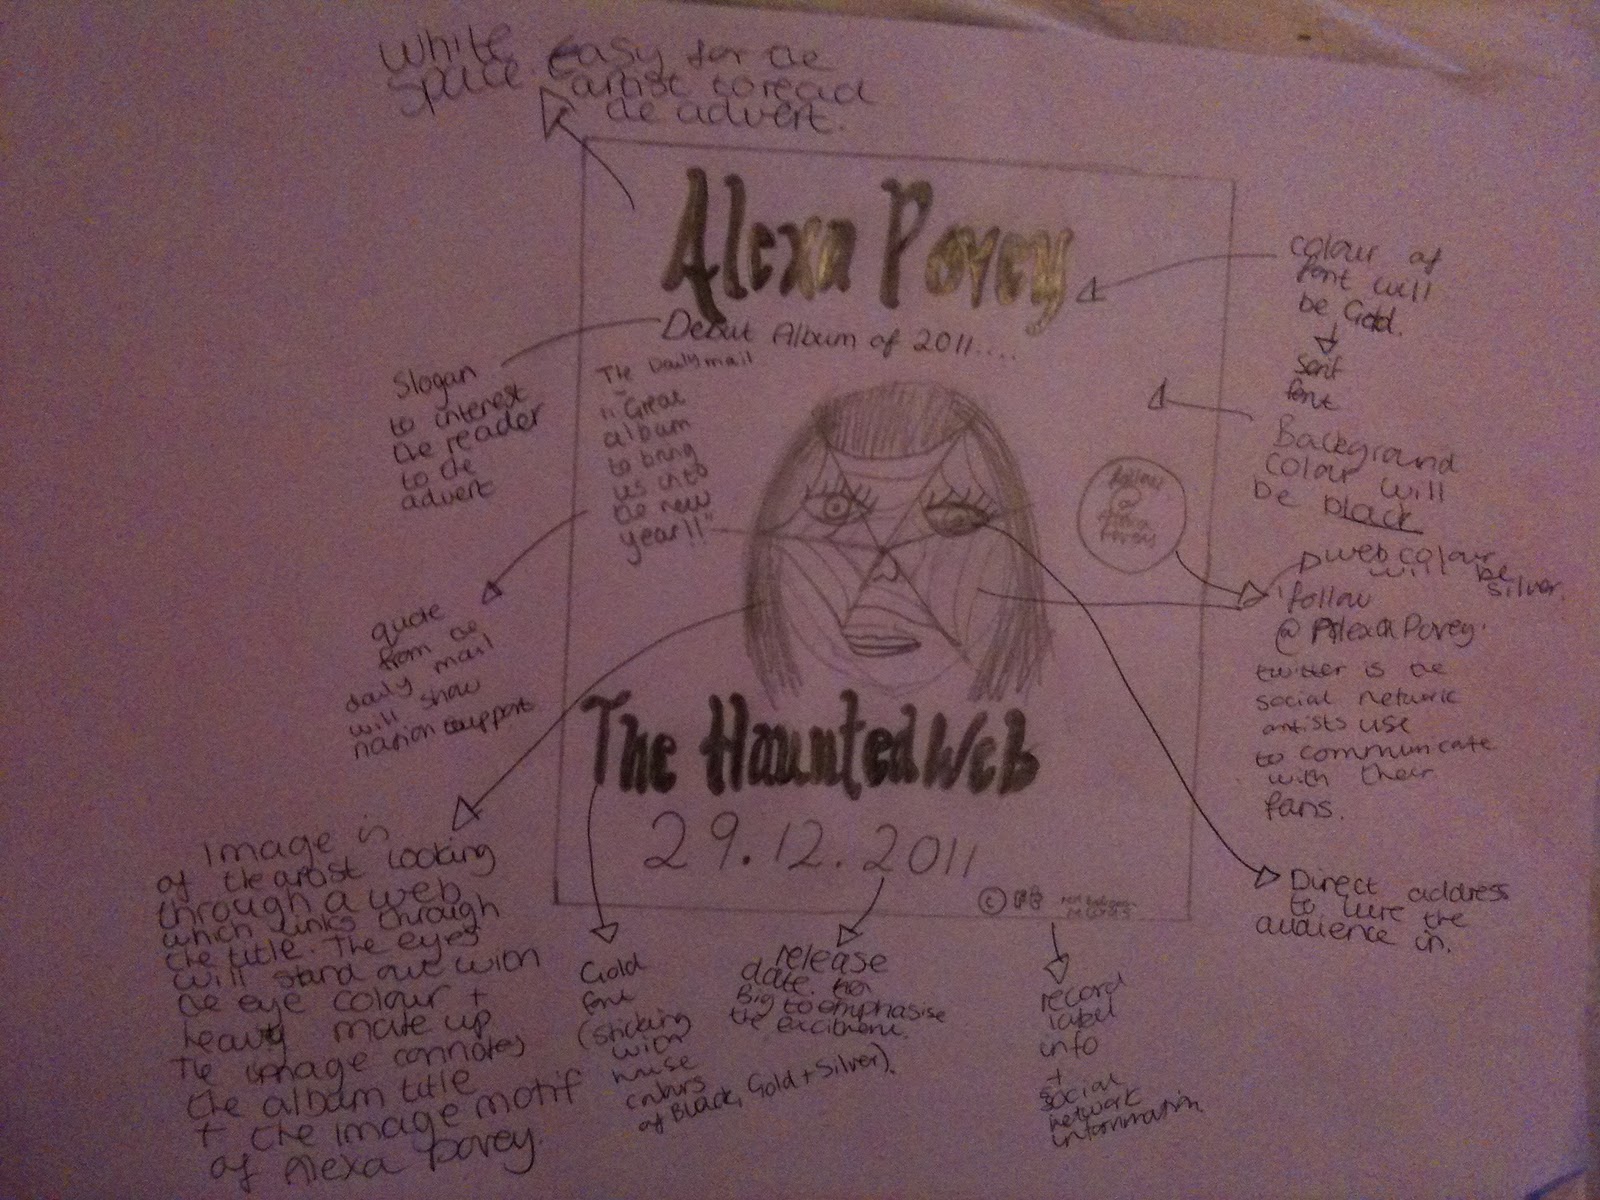 White
space. Easy for the
artist to read
the advert.
Alexa Povey
Debut Album of 2011....
The Daily mail
"Great
album
to bring
us into
the new
year!!"
follow
@
Alexa
Povey
The Haunted Web
29.12.2011
©
records
Slogan
to interest
the reader
to the
advert
quote
from the
daily mail
will show
nation support
Image is
of the artist looking
through a web
which links through
the title. The eyes
will stand out with
the eye colour +
heavy make up
The image connotes
the album title
+ the image motif
of Alexa Povey.
Gold
font
(sticking
with
house
colours
of Black, Gold + Silver).
release
date.
Big to emphasise
the excitment.
record
label
info
+
social
network
information
colour of
font will
be Gold.
Serif
font
Background
colour will
be black
web colour
will be
silver.
'follow
@AlexaPovey.
twitter is the
social network
artists use
to communicate
with their
fans.
Direct address
to lure the
audience in.